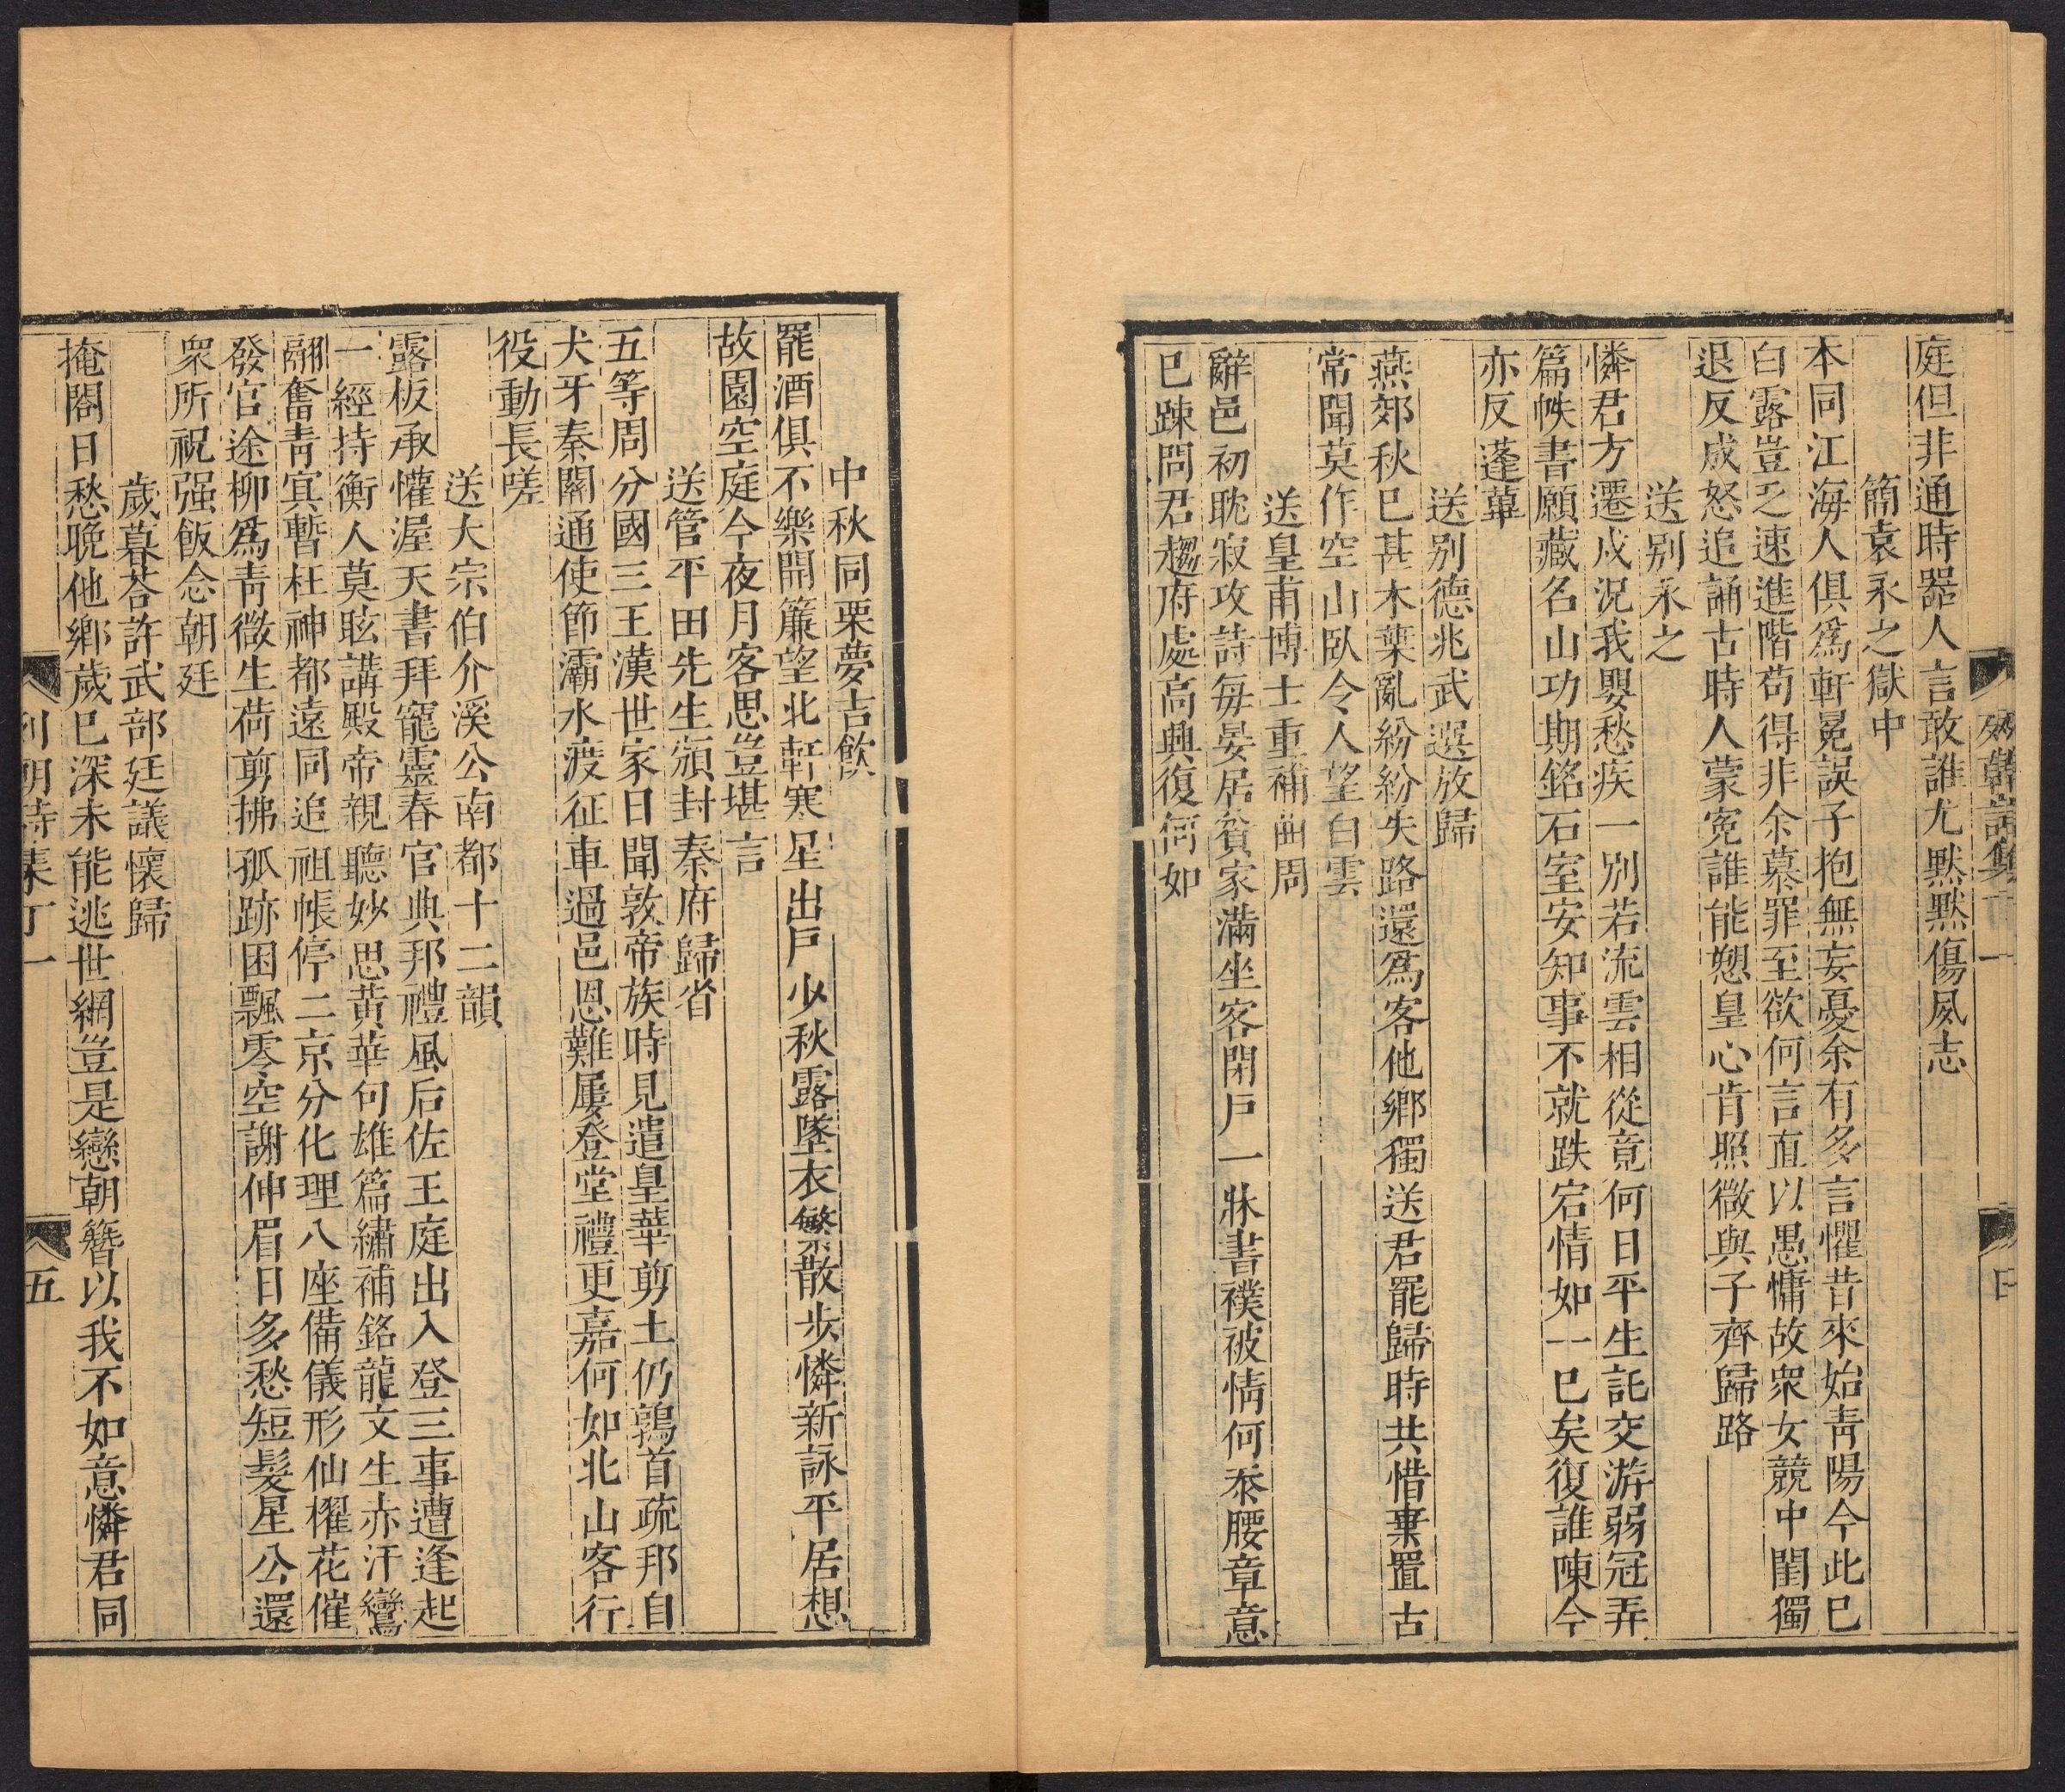 庭但非通時器人言敢誰尤默默傷夙志
簡袁永之獄中
本同江海人俱爲軒冕誤子抱無妄憂余有多言懼昔來始青陽今此巳
白露豈乏速進階苟得非余慕罪至欲何言直以愚慵故衆女競中閨獨
退反成怒追誦古時人蒙寃誰能愬皇心肯照微與子齊歸路
送别永之
憐君方遷戍況我嬰愁疾一别若流雲相從竟何日平生託交游弱冠弄
篇帙書願藏名山功期銘石室安知事不就跌宕情如一巳矣復誰陳今
亦反蓬蓽
送别德兆武選放歸
燕郊秋巳甚木葉亂紛紛失路還爲客他鄉獨送君罷歸時共惜棄置古
常聞莫作空山臥令人望白雲
送皇甫博士重補曲周
辭邑初耽寂攻詩每晏居貧家滿坐客閉戸一牀書襆被情何忝腰章意
巳踈問君趨府處高興復何如
中秋同栗夢吉飲
罷酒俱不樂開簾望北軒寒星出戸少秋露墜衣繁散步憐新詠平居想
故園空庭今夜月客思豈堪言
送管平田先生頒封秦府歸省
五等周分國三王漢世家日聞敦帝族時見遣皇華剪土仍鶉首疏邦自
犬牙秦關通使節灞水渡征車過邑恩難屢登堂禮更嘉何如北山客行
役動長嗟
送大宗伯介溪公南都十二韻
露板承懽渥天書拜寵靈春官典邦禮風后佐王庭出入登三事遭逢起
一經持衡人莫眩講殿帝親聽妙思黃華句雄篇繡補銘龍文生赤汗鸞
翮奮青冥暫枉神都遠同追祖帳停二京分化理八座備儀形仙櫂花催
發官途柳爲青微生荷剪拂孤跡困飄零空謝伸眉日多愁短髮星公還
衆所祝强飯念朝廷
歲暮荅許武部廷議懷歸
掩閣日愁晚他鄉歲巳深未能逃世網豈是戀朝簪以我不如意憐君同
列朝詩集丁一
五